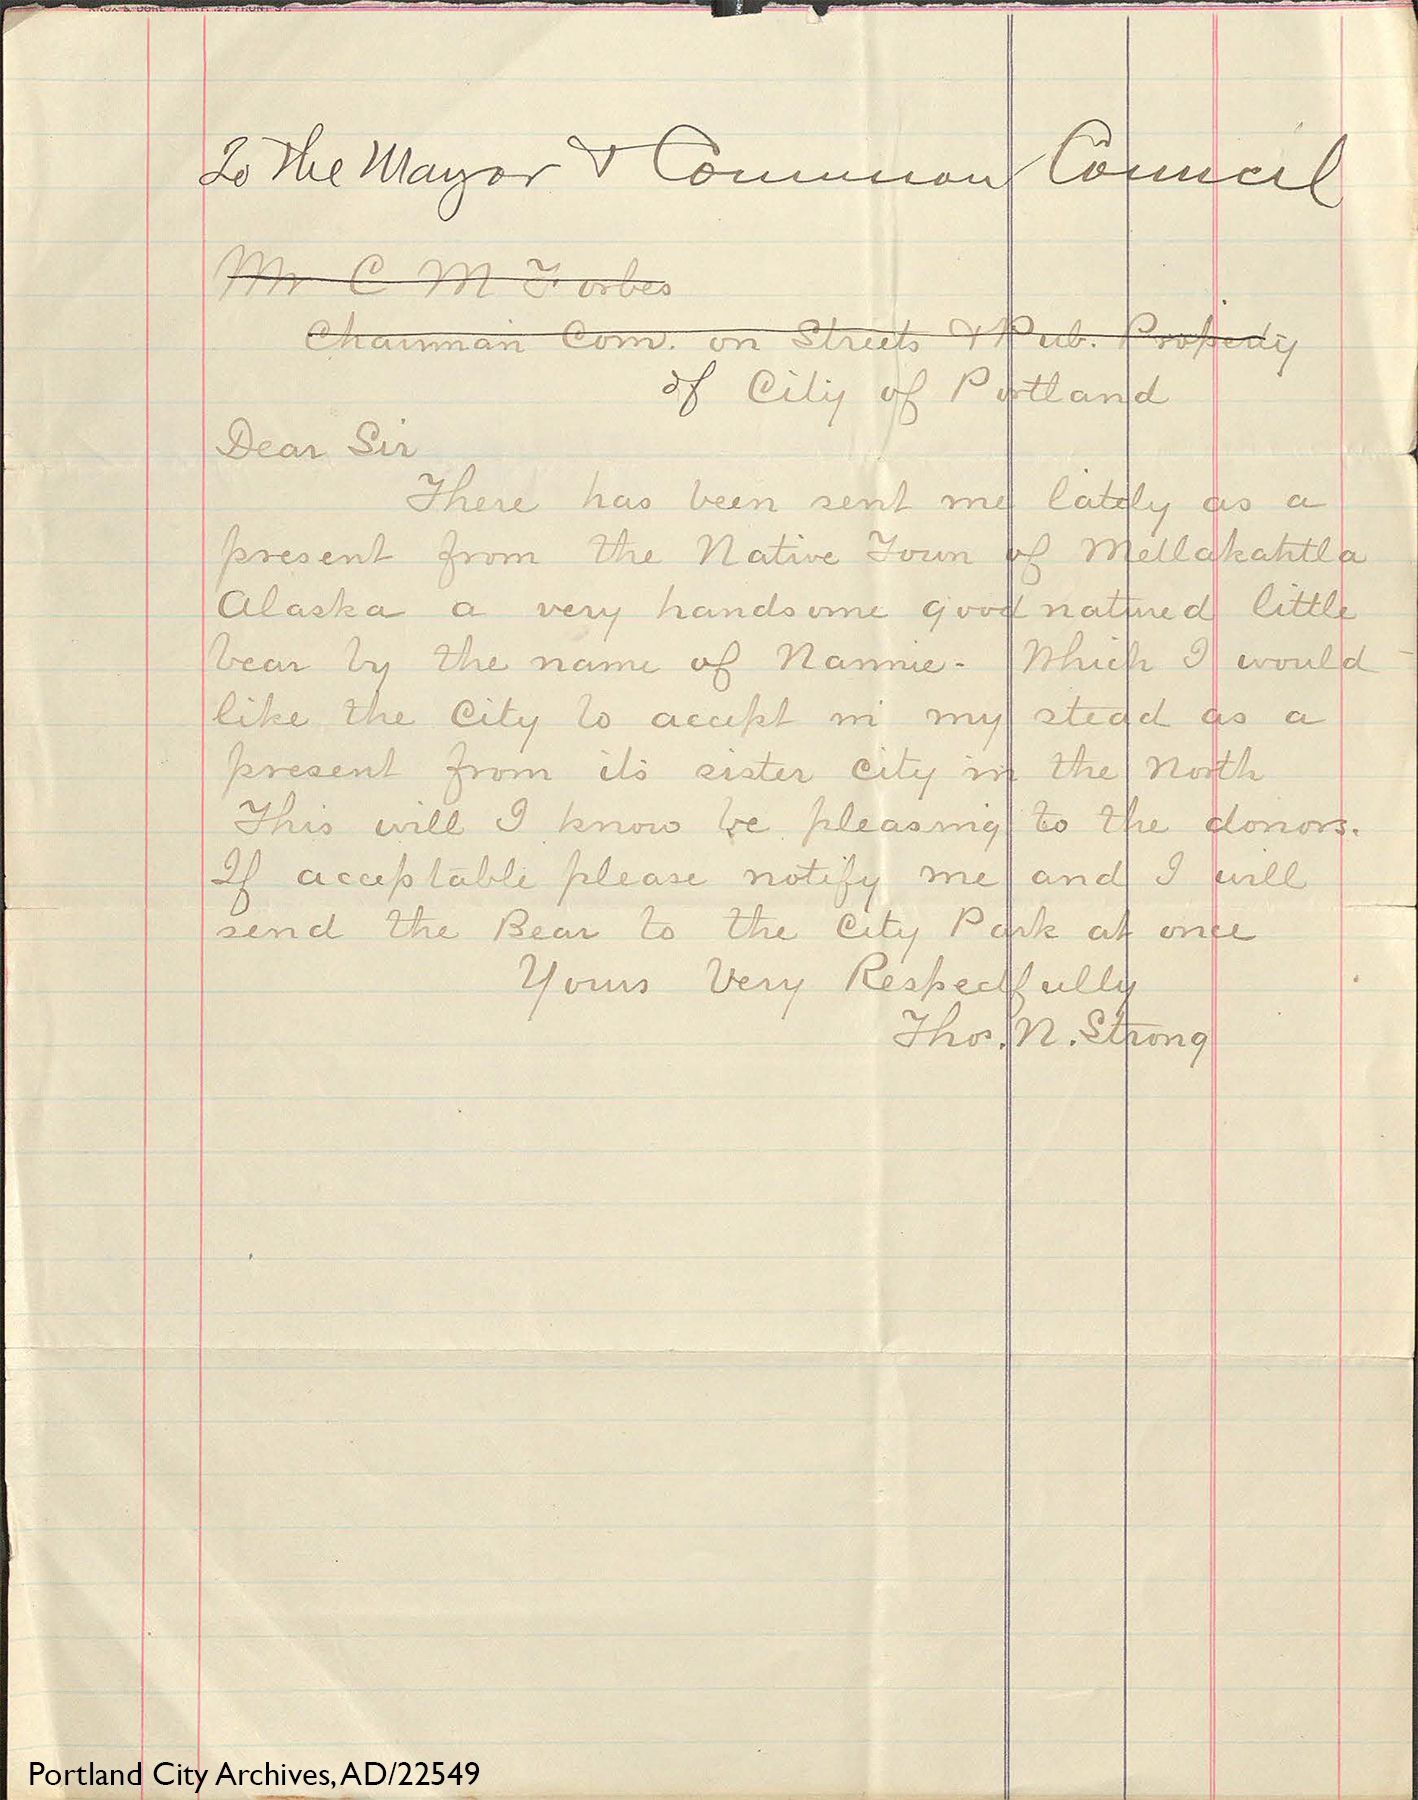 To The Mayor & Common Council
Mr C M Forbes
Chairman Com. on Streets & Pub. Property
of City of Portland
Dear Sir
There has been sent me lately as a
present from the Native Town of Metlakahtla
Alaska a very handsome good natured little
bear by the name of Nannie - Which I would
like the City to accept in my stead as a
present from its sister city in the North
This will I know be pleasing to the donors.
If acceptable please notify me and I will
send the Bear to the City Park at once
Yours Very Respectfully
Thos. N. Strong
Portland City Archives, AD/22549